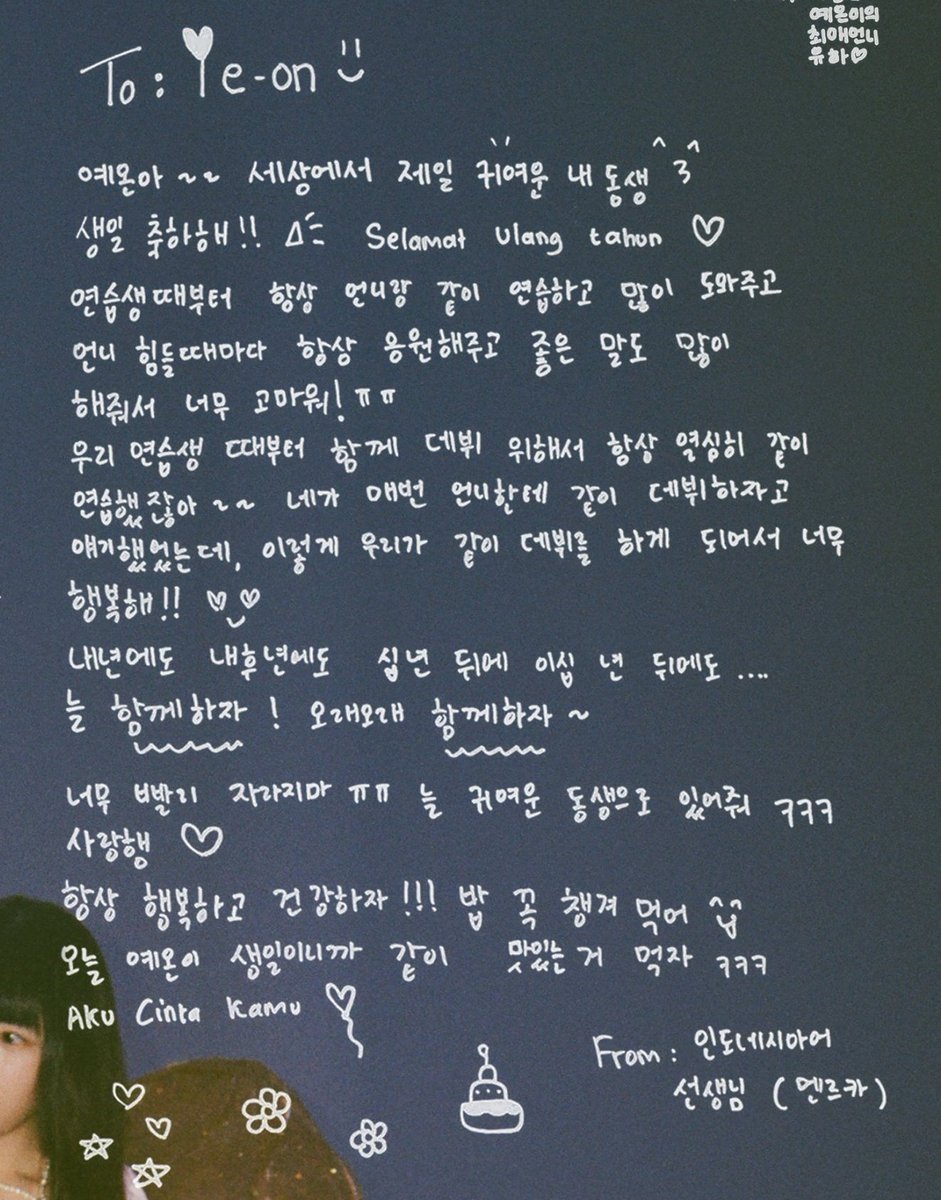 예온이의
최애언니
유하♡
To: Ye-on
예온아 ~~ 세상에서 제일 귀여운 내 동생 ^3^
생일 축하해!! Selamat Ulang tahun ♡
연습생때부터 항상 언니랑 같이 연습하고 많이 도와주고
언니 힘들때마다 항상 응원해주고 좋은 말도 많이
해줘서 너무 고마워! ㅠㅠ
우리 연습생 때부터 함께 데뷔 위해서 항상 열심히 같이
연습했잖아 ~~ 네가 매번 언니한테 같이 데뷔하자고
얘기했었는데, 이렇게 우리가 같이 데뷔를 하게 되어서 너무
행복해!!
내년에도 내후년에도 십년 뒤에 이십 년 뒤에도 ....
늘 함께하자 ! 오래오래 함께하자 ~
너무 빨리 자라지마 ㅠㅠ 늘 귀여운 동생으로 있어줘 ㅋㅋㅋ
사랑행 ♡
항상 행복하고 건강하자!!! 밥 꼭 챙겨 먹어 ^^
오늘 예온이 생일이니까 같이 맛있는 거 먹자 ㅋㅋㅋ
Aku Cinta Kamu
From: 인도네시아어
선생님 (멘르카)